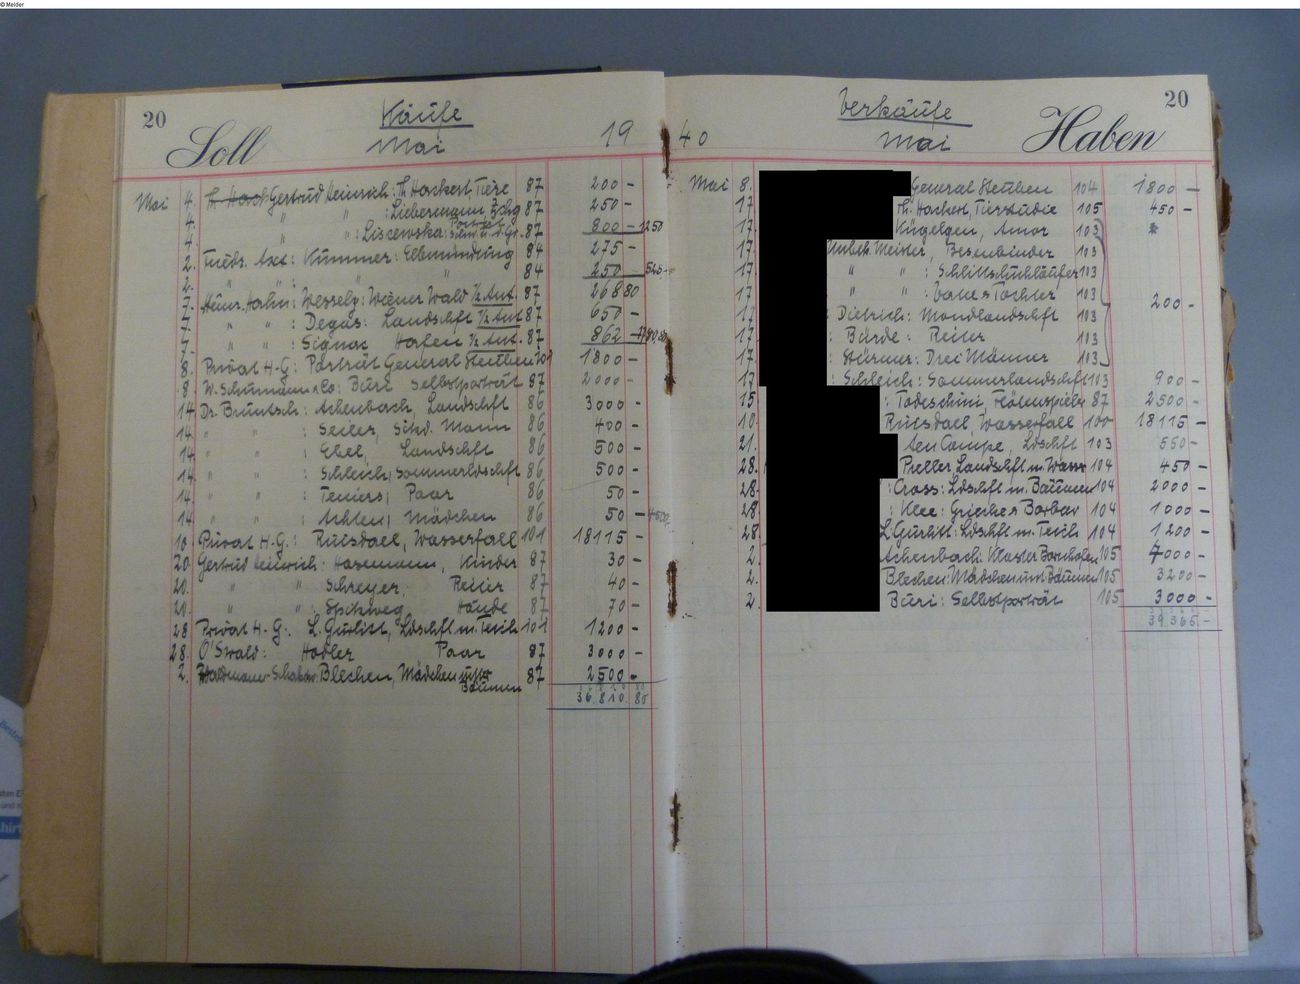 © Melder
20
Käufe
Soll
Mai
19
Mai 4. Th. Hack Gertrud Heinrich: Th. Hackert, Tiere 87 200 –
4. " " : Liebermann Zchg 87 250 –
4. " " : Liscewska: Portrait 87 800 – 1250
2. Frieds. Axt: Kummer: Elbmündung 84 275 –
2. " " : " " 84 250 – 525 –
7. Heinr. Hahn: Wessely: Wiener Wald 1/2 Ant. 87 268 80
7. " " : Degas: Landschft 1/2 Ant 87 650 –
7. " " : Signac Hafen 1/2 Ant. 87 862 – 1780,80
8. Privat H-G: Porträt General Steuben 101 1800 –
8. W. Schumann & Co: Büri Selbstporträt 87 2000 –
14 Dr. Bruntsch: Achenbach, Landschft 86 3000 –
14. " " : Seiler, Sitzd. Mann 86 400 –
14. " " : Ebel, Landschft 86 500 –
14. " " : Schleich; Sommerldschft 86 500 –
14. " " : Teniers; Paar 86 50 –
14 " " : Achten; Mädchen 86 50 – 4500
10. Privat H-G.: Ruisdael, Wasserfall 101 18115 –
20. Gertrud Heinrich: Hosemann, Kinder 87 30 –
20. " " : Schreyer, Reiter 87 40 –
20. " " : Spitzweg, Hunde 87 70 –
28 Privat H-G.: L. Gurlitt, Ldschft m. Teich 101 1200 –
28. O'Swald: Hodler Paar 87 3000 –
2. Blechen, Mädchen unter Bäumen 87 2500 –
36.810 80
20
Verkäufe
40
Mai
Haben
Mai 8. General Steuben 104 1800 –
17 Th. Hackert, Tierstudie 105 450 –
17. Kügelgen, Amor 103
17. Unbek. Meister, Besenbinder 103
17. " " : Schlittschuhläufer 103
17 " " : Vater & Tochter 103 200 –
17. Dietrich: Mondlandschft 103
17 : Bürde: Reiter 103
17 : Stürmer: Drei Männer 103
17 : Schleich: Sommerlandschft 103 900 –
15 : Todeschini, Flötenspieler 87 2500 –
10. Ruisdael, Wasserfall 100 18115 –
21. Ten Compe, Ldschft 103 550 –
28. Preller Landschft m. Wass 104 450 –
28. : Cross: Ldschft m. Bäumen 104 2000 –
28 : Klee: Grieche & Barbar 104 1000 –
28. L. Gurlitt: Ldschft m. Teich 104 1200 –
2. Achenbach: Kloster Bornhofen 105 4000 –
2. Blechen: Mädchen unt Bäumen 105 3200 –
2 Büri: Selbstporträt 105 3000 –
39.365 –